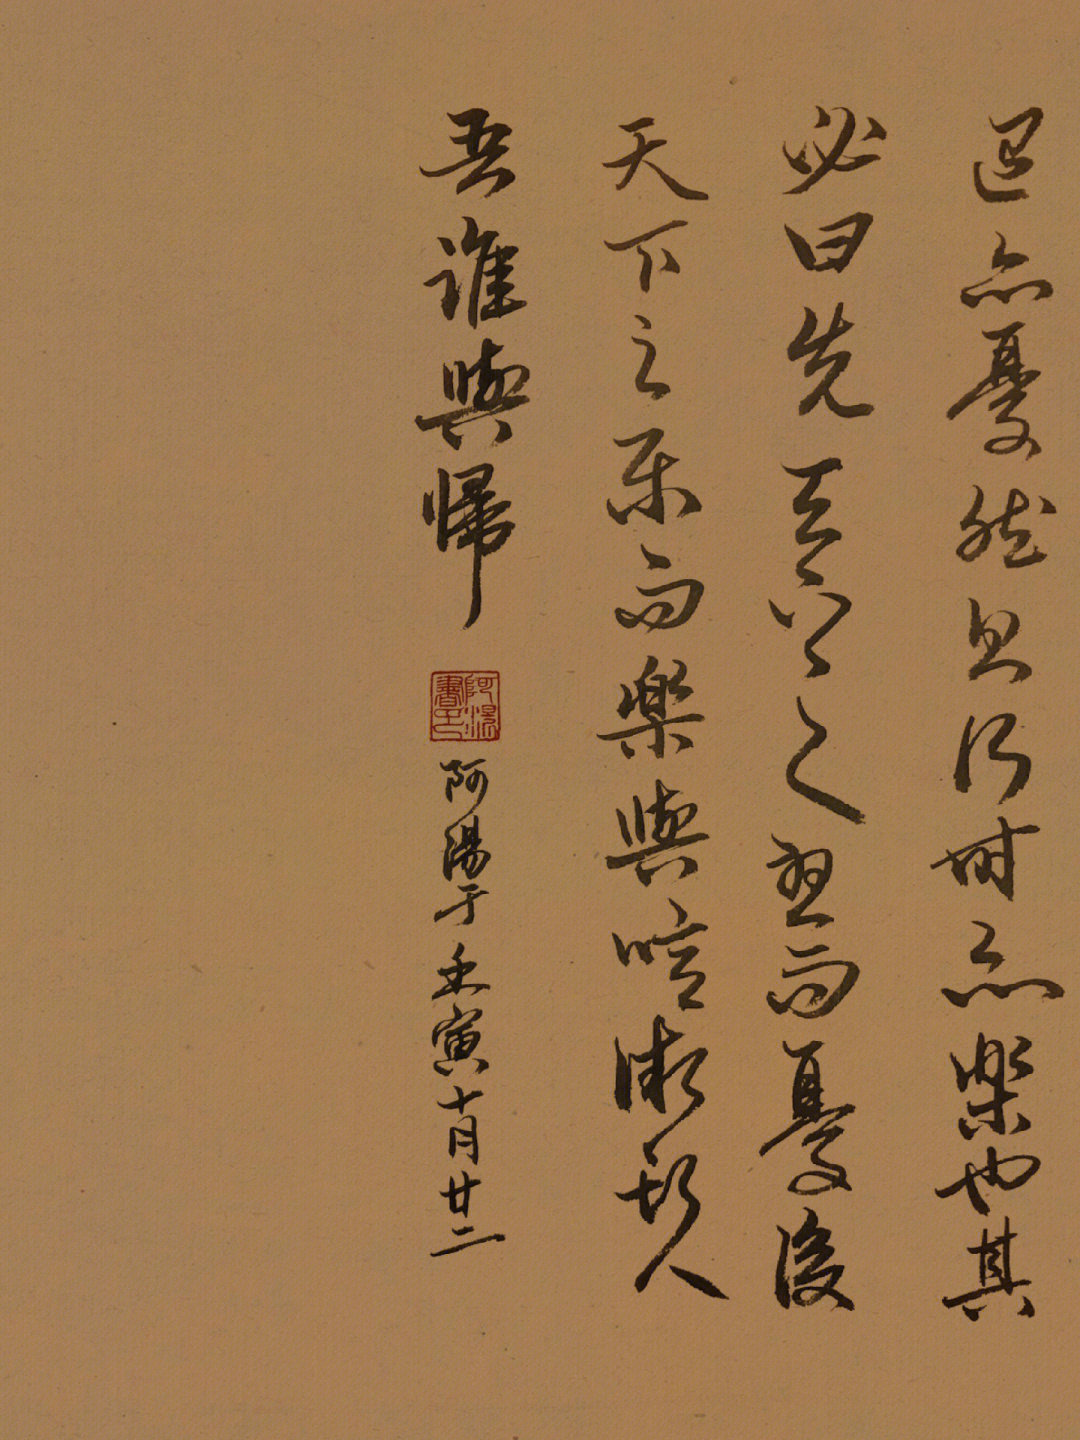 退亦憂然則何時亦樂也其
必曰先天下之憂而憂後
天下之樂而樂與噫微斯人
吾誰與歸
阿湯書印
阿湯于壬寅十月廿二